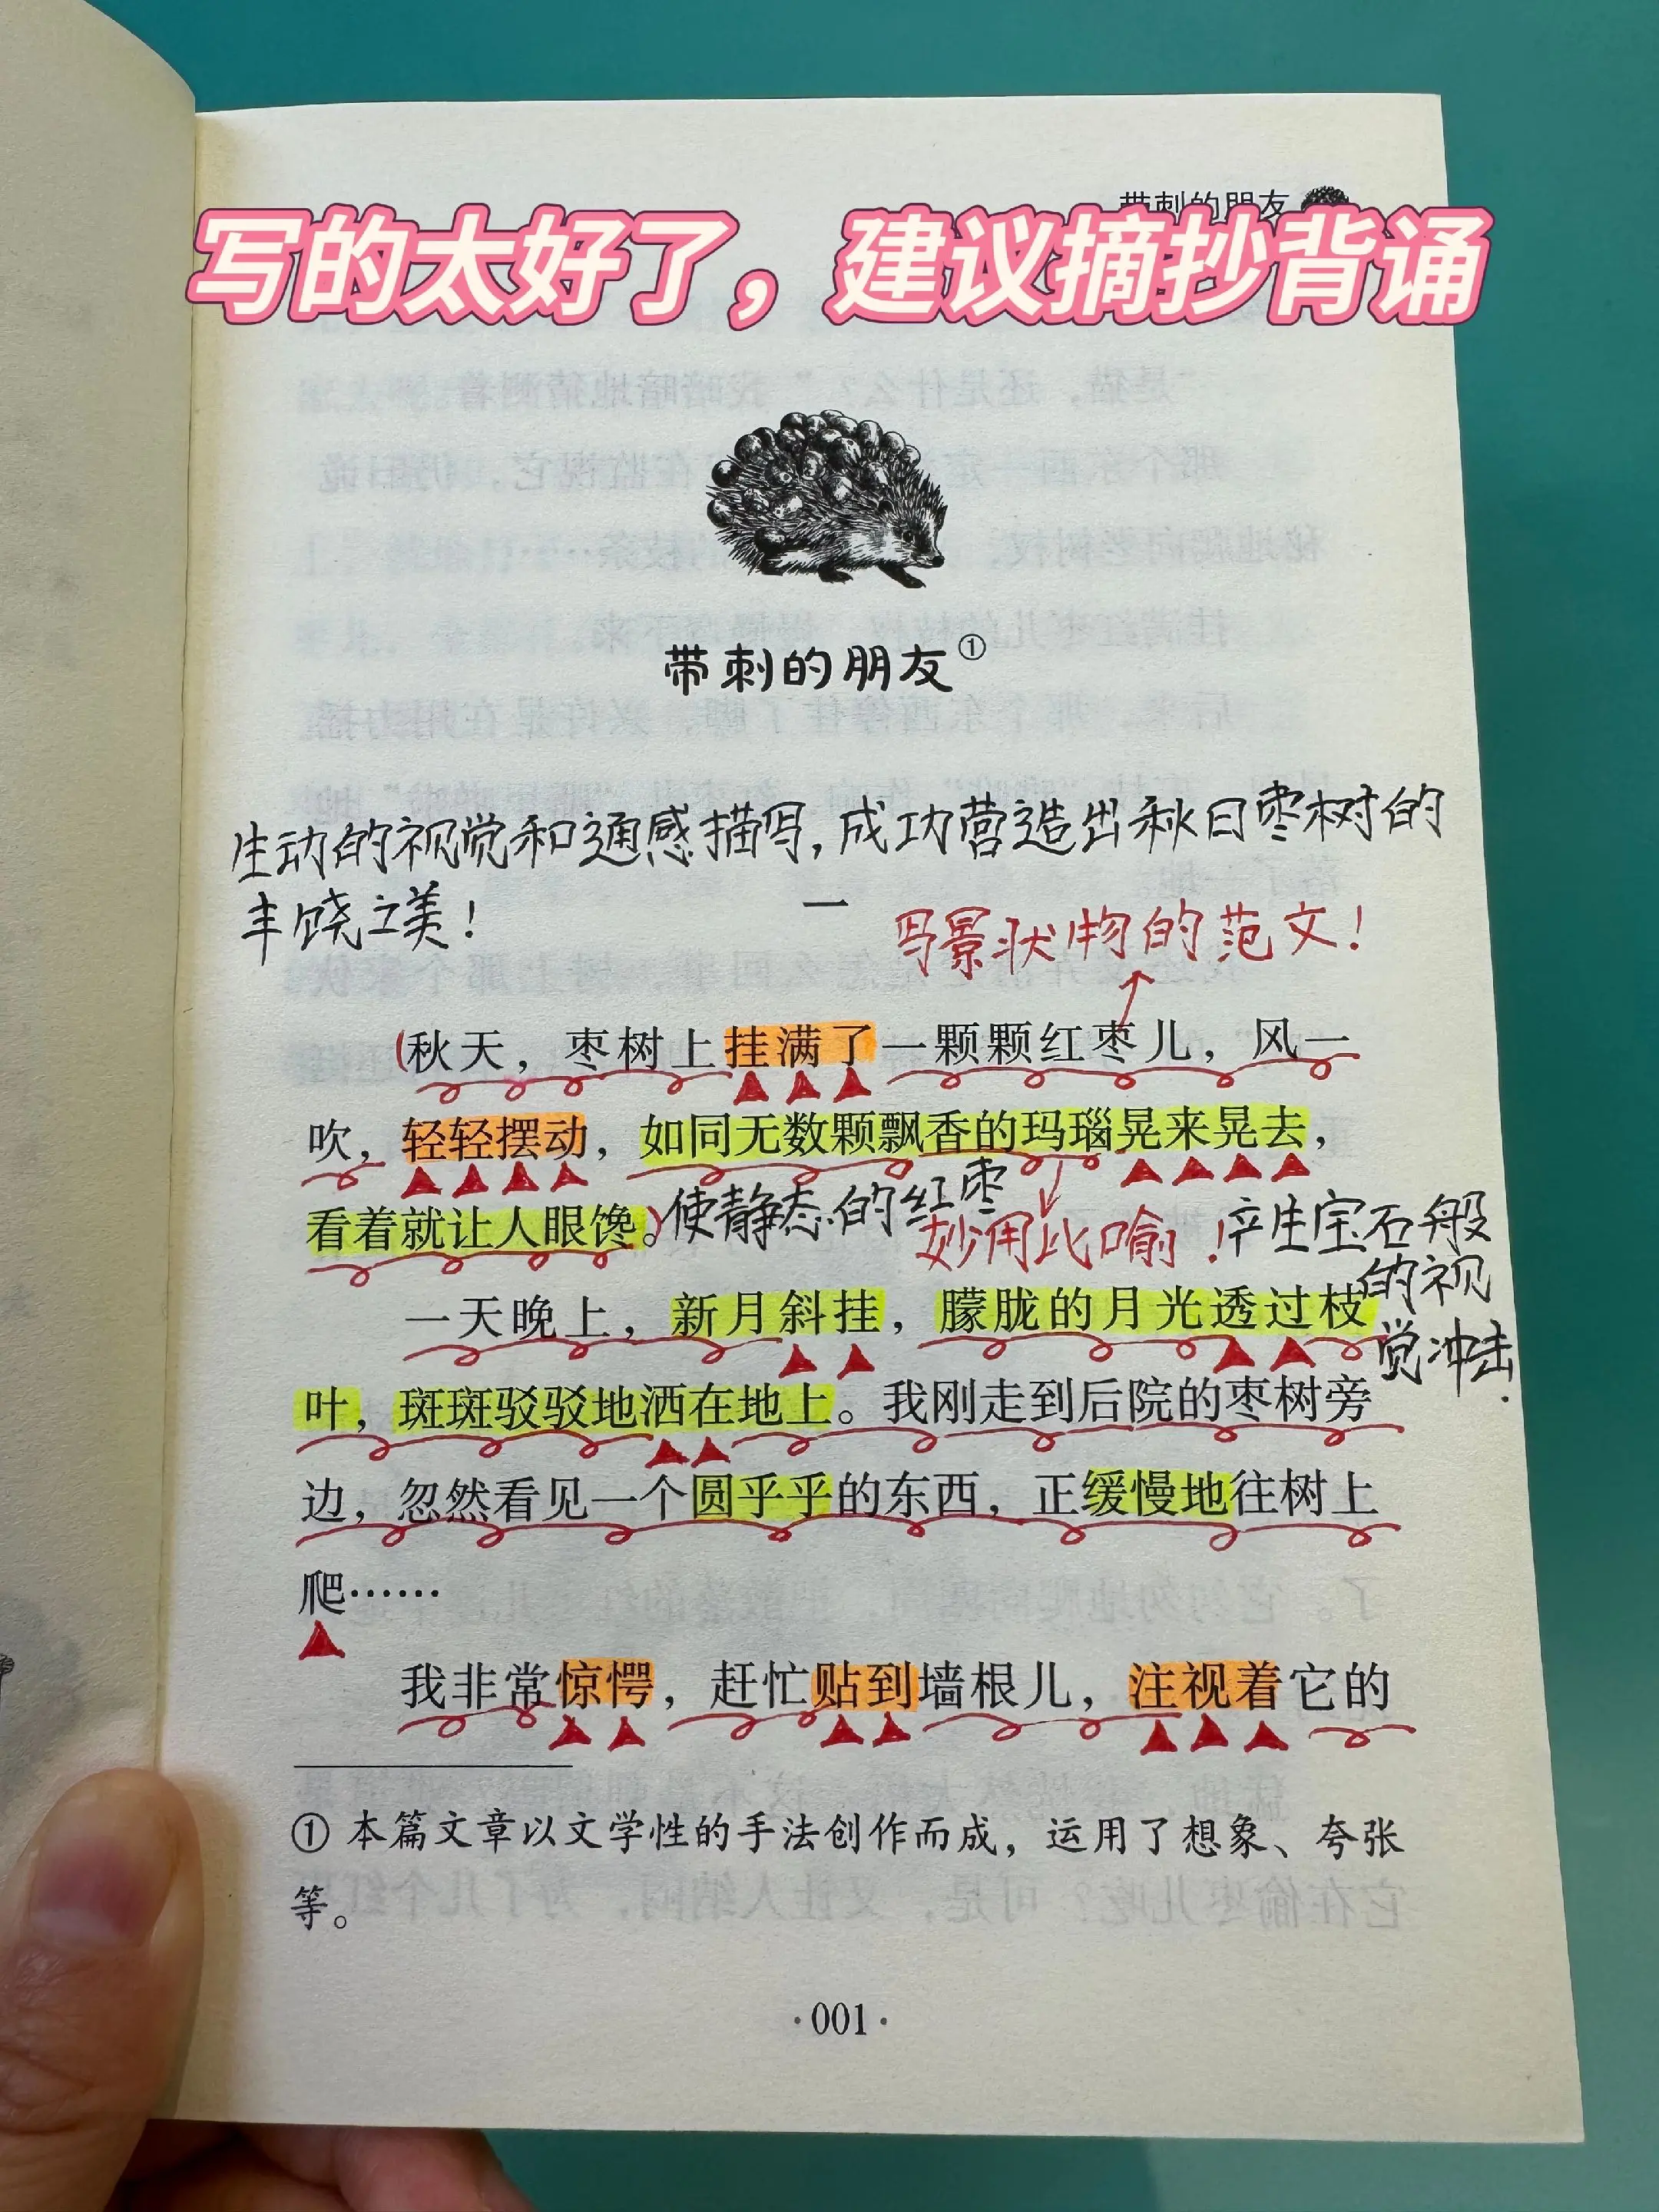 带刺的朋友
写的太好了，建议摘抄背诵
带刺的朋友①
生动的视觉和通感描写，成功营造出秋日枣树的
丰饶之美！
一
写景状物的范文！
(秋天，枣树上挂满了一颗颗红枣儿，风一
吹，轻轻摆动，如同无数颗飘香的玛瑙晃来晃去，
看着就让人眼馋。)
使静态的红枣
妙用比喻！
产生宝石般
的视
觉冲击.
一天晚上，新月斜挂，朦胧的月光透过枝
叶，斑斑驳驳地洒在地上。我刚走到后院的枣树旁
边，忽然看见一个圆乎乎的东西，正缓慢地往树上
爬……
我非常惊愕，赶忙贴到墙根儿，注视着它的
① 本篇文章以文学性的手法创作而成，运用了想象、夸张
等。
·001·